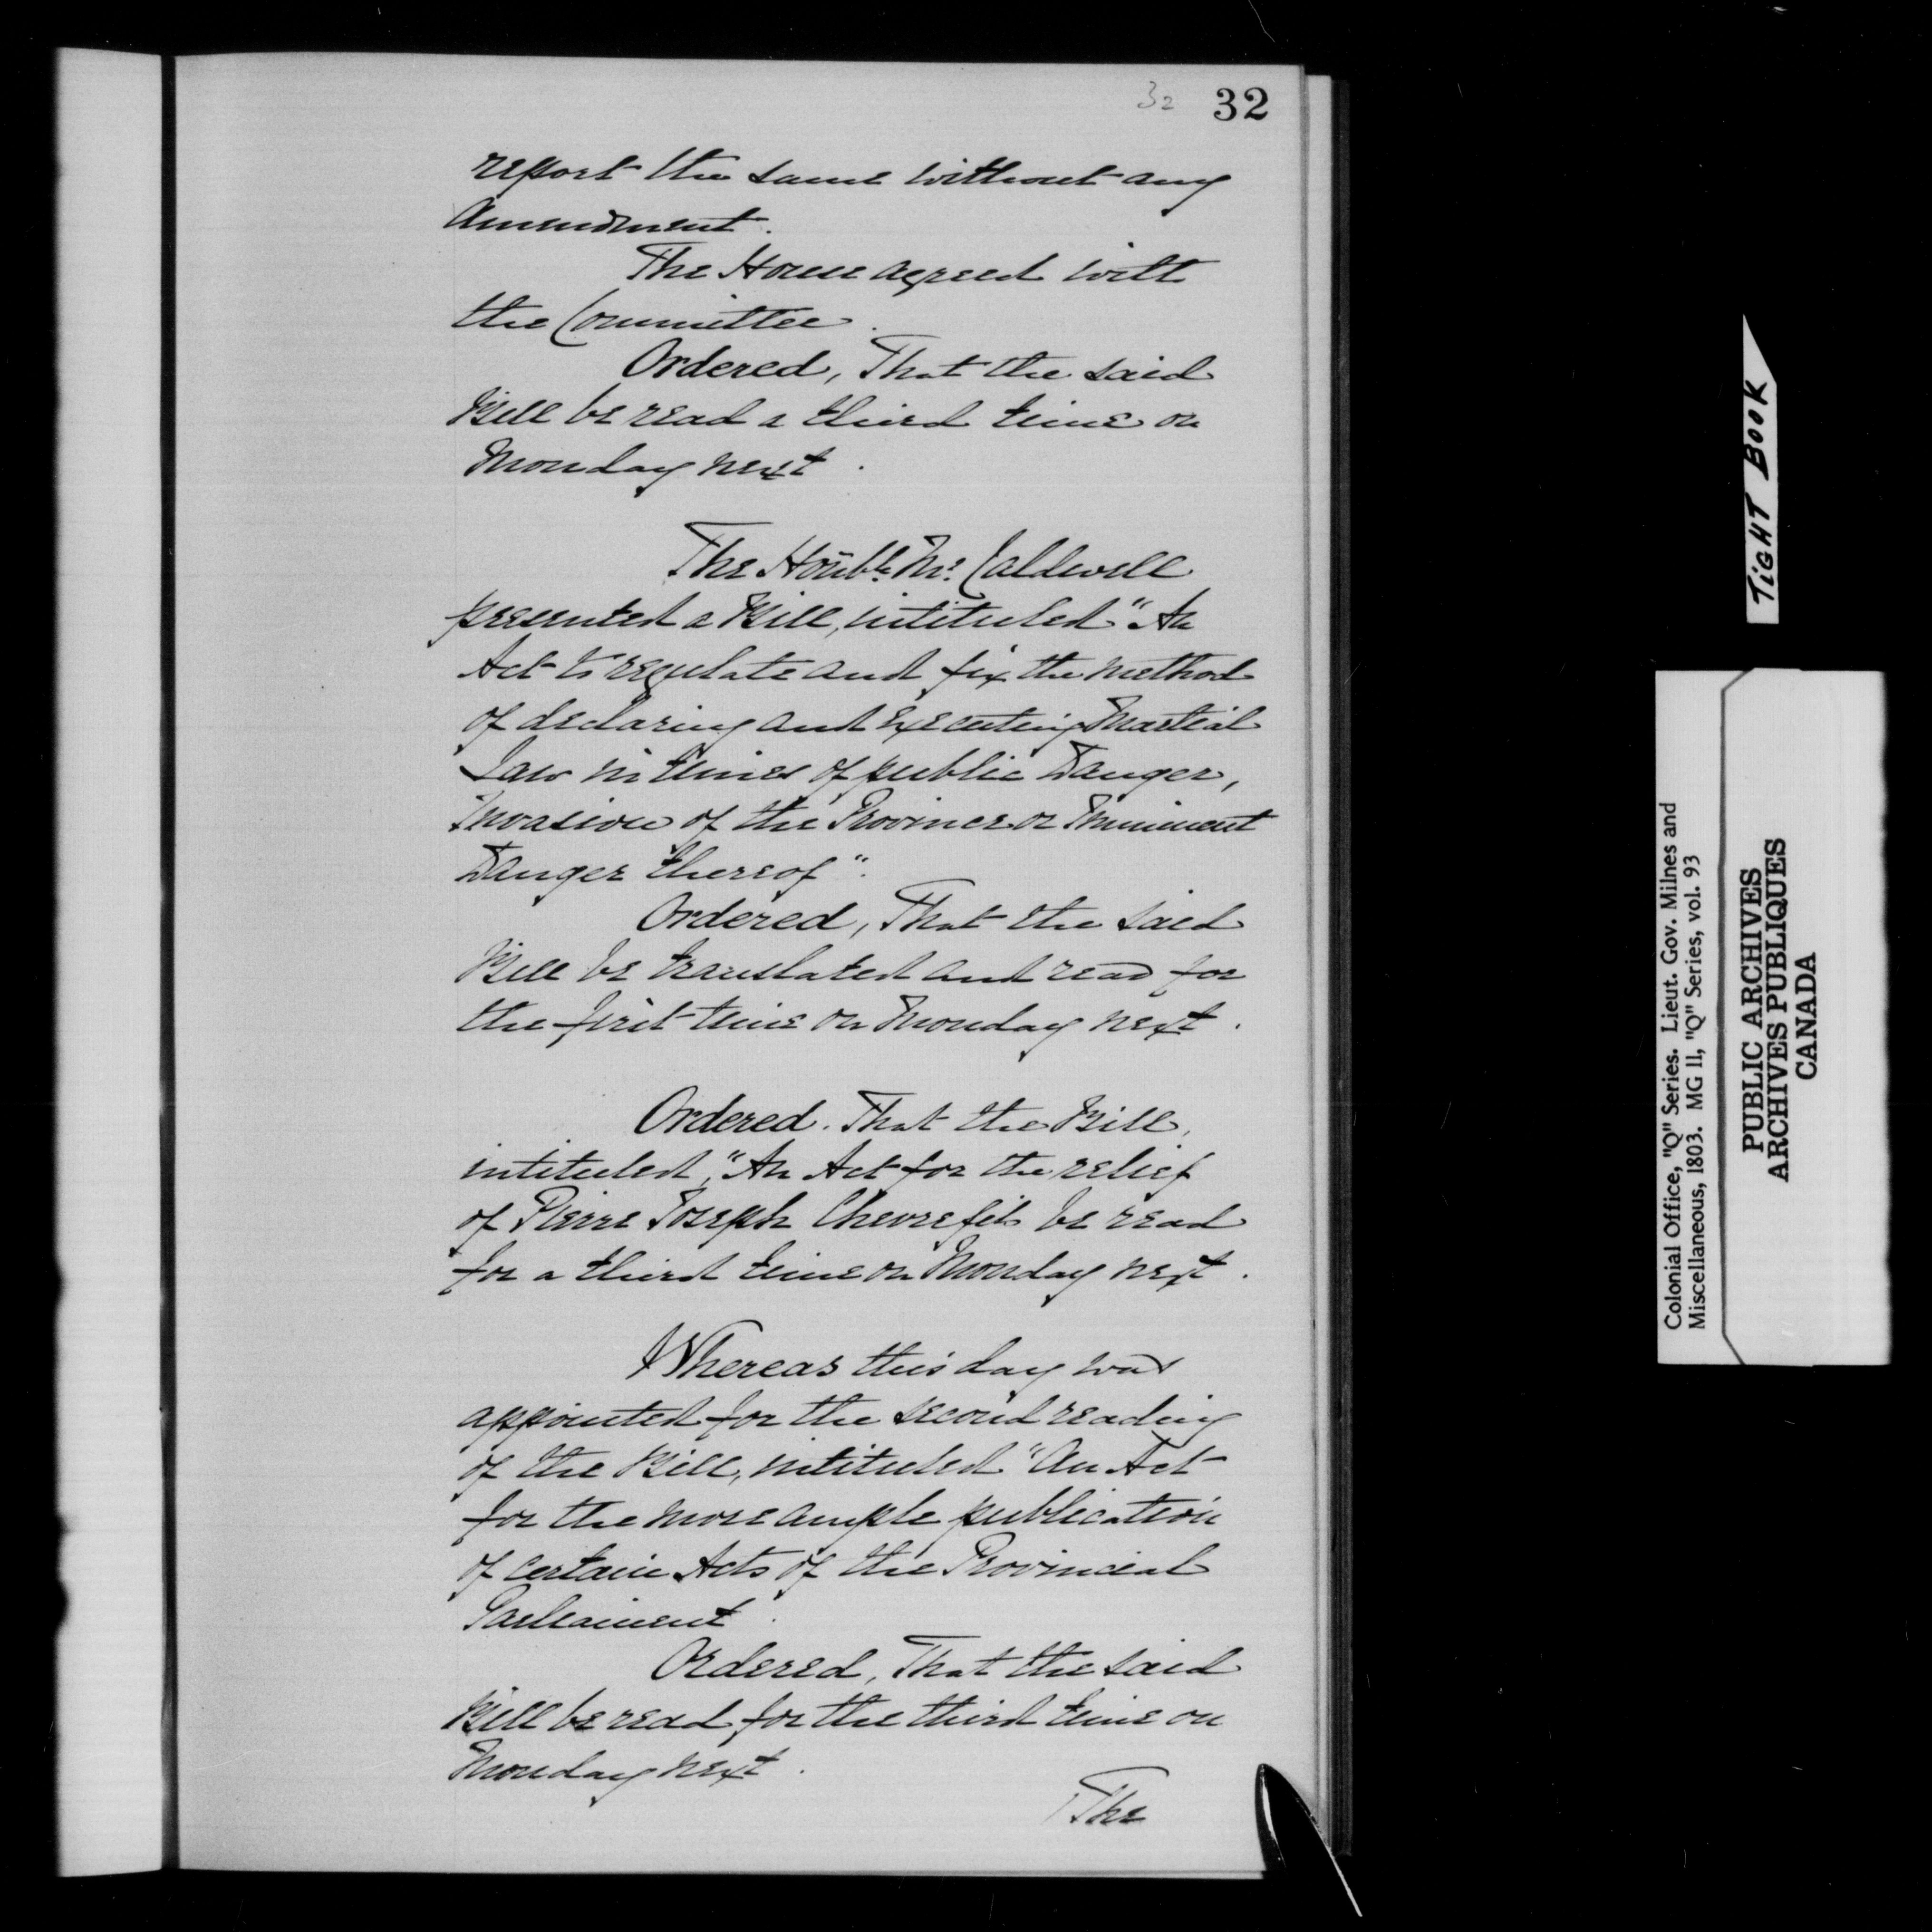 32 32
report the same without any
Amendment.
The House agreed with
the Committee.
Ordered, That the said
Bill be read a third time on
Monday next.
The Honble. Mr. Caldwell
presented a Bill, intituled "An
Act to regulate and fix the method
of declaring and Executing Martial
Law in times of public Danger,
Invasion of the Province or Imminent
Danger thereof".
Ordered, That the said
Bill be translated and read for
the first time on Monday next.
Ordered. That the Bill,
intituled, "An Act for the relief
of Pierre Joseph Chevrefils be read
for a third time on Monday next.
Whereas this day was
appointed for the second reading
of the Bill, intituled "An Act
for the more ample publication
of certain Acts of the Provincial
Parliament.
Ordered, That the said
Bill be read for the third time on
Monday next.
The
TIGHT BOOK
Colonial Office, "Q" Series. Lieut. Gov. Milnes and
Miscellaneous, 1803. MG 11, "Q" Series, vol. 93
PUBLIC ARCHIVES
ARCHIVES PUBLIQUES
CANADA